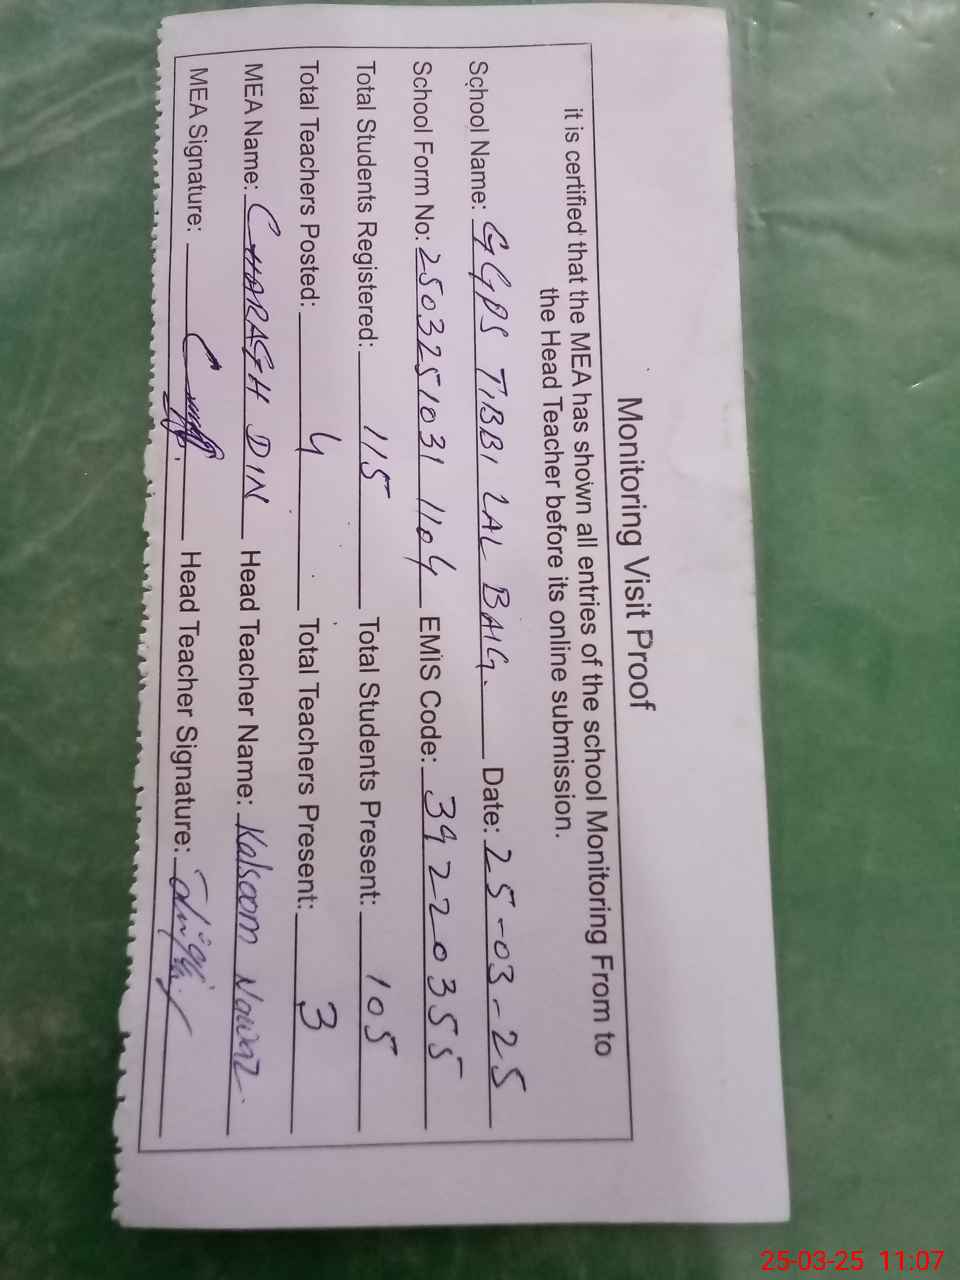 Monitoring Visit Proof
it is certified that the MEA has shown all entries of the school Monitoring From to
the Head Teacher before its online submission.
School Name: GGPS TIBBI LAL BAIG. Date: 25-03-25
School Form No: 25032510311104 EMIS Code: 39220355
Total Students Registered: 115 Total Students Present: 105
Total Teachers Posted: 4 Total Teachers Present: 3
MEA Name: CHARAGH DIN Head Teacher Name: Kalsoom Nawaz
MEA Signature: Head Teacher Signature:
25-03-25 11:07